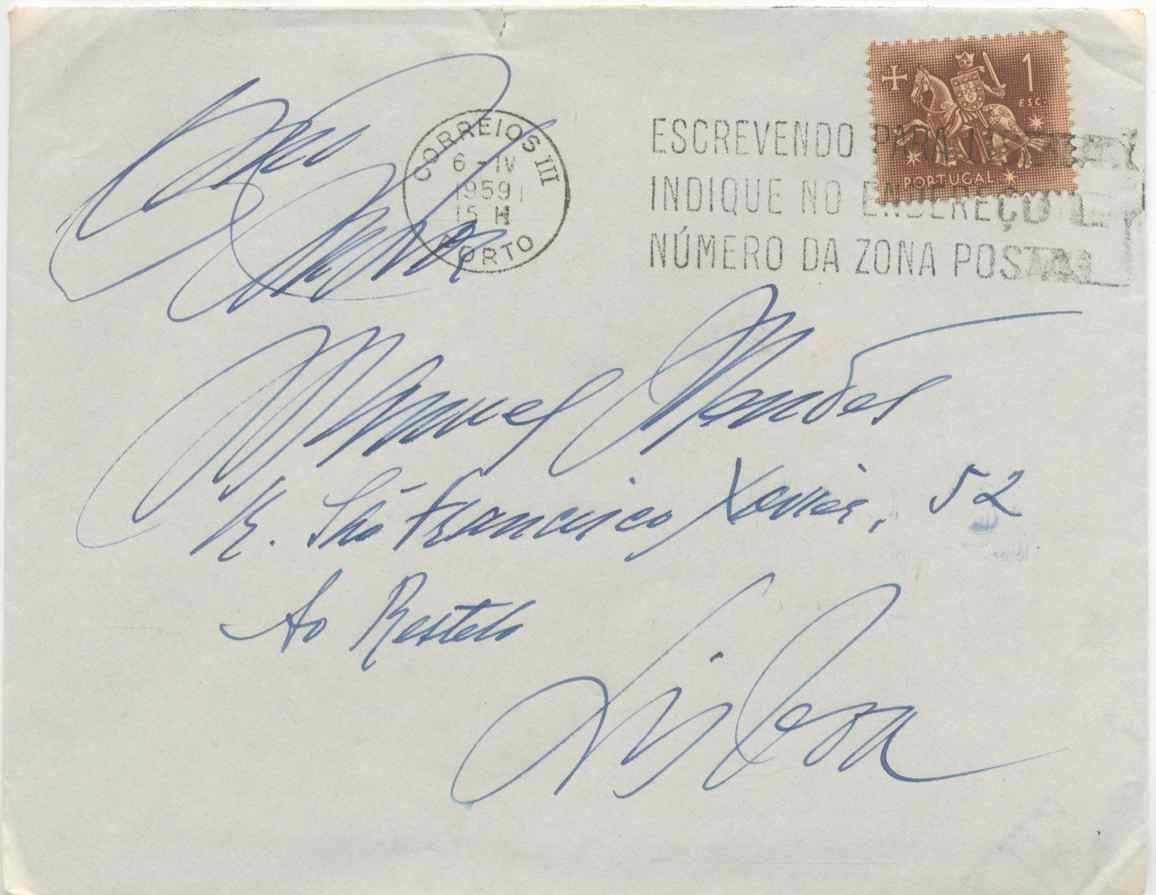 1
ESC.
PORTUGAL
CORREIOS III
6-IV
1959
15 H
PORTO
ESCREVENDO PARA
INDIQUE NO ENDEREÇO
NÚMERO DA ZONA POSTAL
Senhor
Manuel Mendes
R. São Francisco Xavier, 52
Ao Restelo
Lisboa